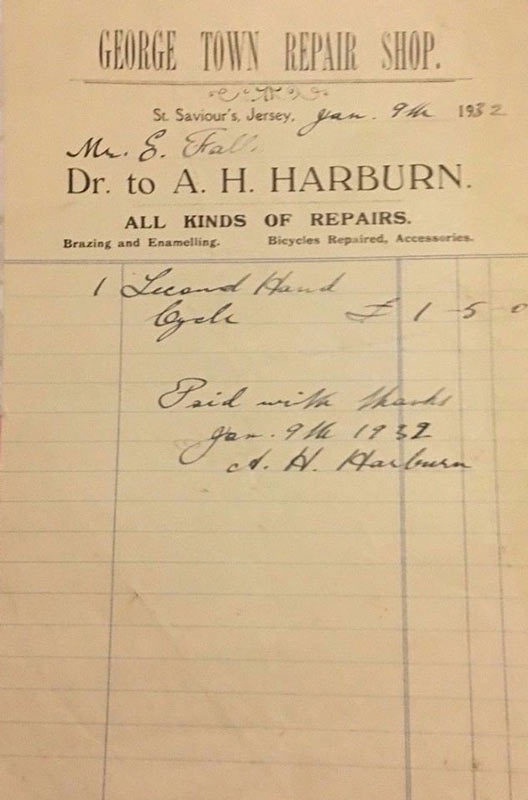 GEORGE TOWN REPAIR SHOP.
St. Saviour's, Jersey, Jan. 9th 1932
Mr. E. Fall.
Dr. to A. H. HARBURN.
ALL KINDS OF REPAIRS.
Brazing and Enamelling. Bicycles Repaired, Accessories.
1 Second Hand
Cycle £ 1 5 0
Paid with thanks
Jan. 9th 1932
A. H. Harburn